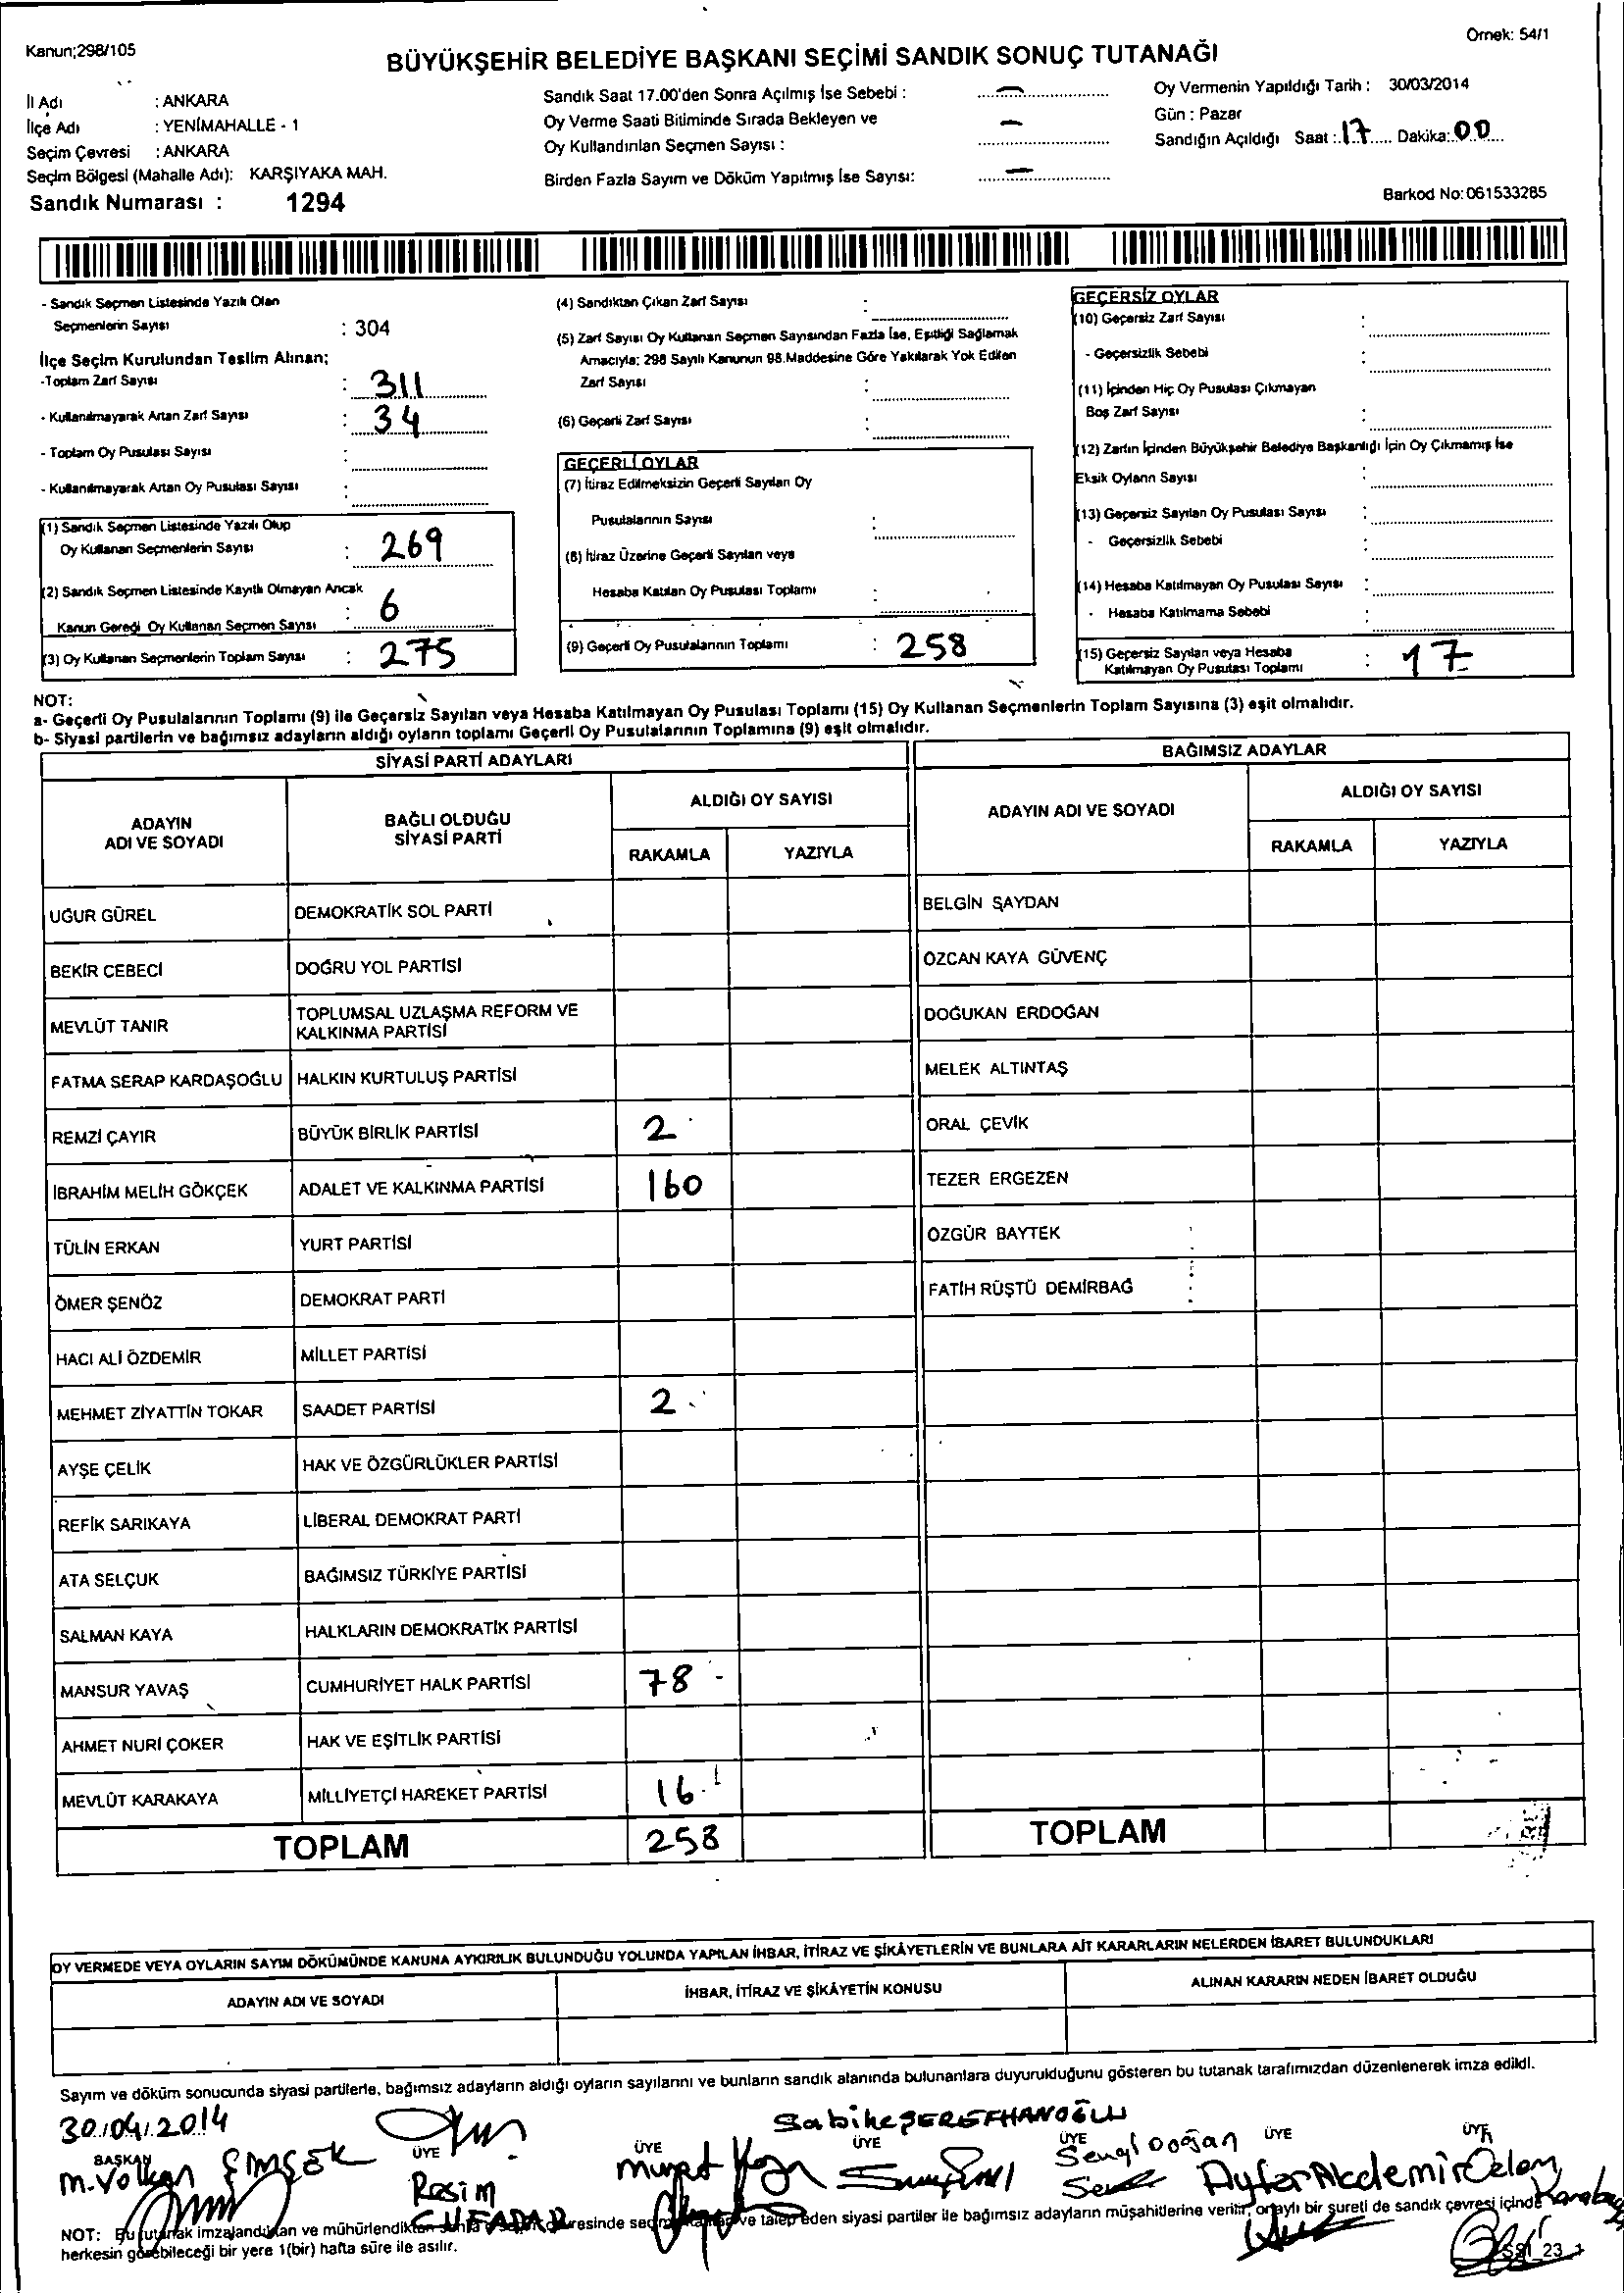 Kanun;298/105
Örnek: 54/1
BÜYÜKŞEHİR BELEDİYE BAŞKANI SEÇİMİ SANDIK SONUÇ TUTANAĞI
İl Adı : ANKARA
İlçe Adı : YENİMAHALLE - 1
Seçim Çevresi : ANKARA
Seçim Bölgesi (Mahalle Adı): KARŞIYAKA MAH.
Sandık Numarası : 1294
Sandık Saat 17.00'den Sonra Açılmış İse Sebebi : —
Oy Verme Saati Bitiminde Sırada Bekleyen ve
Oy Kullandırılan Seçmen Sayısı : —
Birden Fazla Sayım ve Döküm Yapılmış İse Sayısı: —
Oy Vermenin Yapıldığı Tarih : 30/03/2014
Gün : Pazar
Sandığın Açıldığı Saat : 17 Dakika: 00
Barkod No: 061533285
- Sandık Seçmen Listesinde Yazılı Olan
Seçmenlerin Sayısı : 304
İlçe Seçim Kurulundan Teslim Alınan;
-Toplam Zarf Sayısı : 311
- Kullanılmayarak Artan Zarf Sayısı : 34
- Toplam Oy Pusulası Sayısı :
- Kullanılmayarak Artan Oy Pusulası Sayısı :
(1) Sandık Seçmen Listesinde Yazılı Olup
Oy Kullanan Seçmenlerin Sayısı : 269
(2) Sandık Seçmen Listesinde Kayıtlı Olmayan Ancak
Kanun Gereği Oy Kullanan Seçmen Sayısı : 6
(3) Oy Kullanan Seçmenlerin Toplam Sayısı : 275
(4) Sandıktan Çıkan Zarf Sayısı :
(5) Zarf Sayısı Oy Kullanan Seçmen Sayısından Fazla İse, Eşitliği Sağlamak
Amacıyla; 298 Sayılı Kanunun 98.Maddesine Göre Yakılarak Yok Edilen
Zarf Sayısı :
(6) Geçerli Zarf Sayısı :
GEÇERLİ OYLAR
(7) İtiraz Edilmeksizin Geçerli Sayılan Oy
Pusulalarının Sayısı :
(8) İtiraz Üzerine Geçerli Sayılan veya
Hesaba Katılan Oy Pusulası Toplamı :
(9) Geçerli Oy Pusulalarının Toplamı : 258
GEÇERSİZ OYLAR
(10) Geçersiz Zarf Sayısı :
- Geçersizlik Sebebi :
(11) İçinden Hiç Oy Pusulası Çıkmayan
Boş Zarf Sayısı :
(12) Zarfın İçinden Büyükşehir Belediye Başkanlığı İçin Oy Çıkmamış İse
Eksik Oyların Sayısı :
(13) Geçersiz Sayılan Oy Pusulası Sayısı :
- Geçersizlik Sebebi :
(14) Hesaba Katılmayan Oy Pusulası Sayısı :
- Hesaba Katılmama Sebebi :
(15) Geçersiz Sayılan veya Hesaba
Katılmayan Oy Pusulası Toplamı : 17
NOT:
a- Geçerli Oy Pusulalarının Toplamı (9) ile Geçersiz Sayılan veya Hesaba Katılmayan Oy Pusulası Toplamı (15) Oy Kullanan Seçmenlerin Toplam Sayısına (3) eşit olmalıdır.
b- Siyasi partilerin ve bağımsız adayların aldığı oyların toplamı Geçerli Oy Pusulalarının Toplamına (9) eşit olmalıdır.
SİYASİ PARTİ ADAYLARI
ADAYIN ADI VE SOYADI
BAĞLI OLDUĞU SİYASİ PARTİ
ALDIĞI OY SAYISI
RAKAMLA YAZIYLA
UĞUR GÜREL DEMOKRATİK SOL PARTİ
BEKİR CEBECİ DOĞRU YOL PARTİSİ
MEVLÜT TANIR TOPLUMSAL UZLAŞMA REFORM VE KALKINMA PARTİSİ
FATMA SERAP KARDAŞOĞLU HALKIN KURTULUŞ PARTİSİ
REMZİ ÇAYIR BÜYÜK BİRLİK PARTİSİ 2
İBRAHİM MELİH GÖKÇEK ADALET VE KALKINMA PARTİSİ 160
TÜLİN ERKAN YURT PARTİSİ
ÖMER ŞENÖZ DEMOKRAT PARTİ
HACI ALİ ÖZDEMİR MİLLET PARTİSİ
MEHMET ZİYATTİN TOKAR SAADET PARTİSİ 2
AYŞE ÇELİK HAK VE ÖZGÜRLÜKLER PARTİSİ
REFİK SARIKAYA LİBERAL DEMOKRAT PARTİ
ATA SELÇUK BAĞIMSIZ TÜRKİYE PARTİSİ
SALMAN KAYA HALKLARIN DEMOKRATİK PARTİSİ
MANSUR YAVAŞ CUMHURİYET HALK PARTİSİ 78
AHMET NURİ ÇOKER HAK VE EŞİTLİK PARTİSİ
MEVLÜT KARAKAYA MİLLİYETÇİ HAREKET PARTİSİ 16
TOPLAM 258
BAĞIMSIZ ADAYLAR
ADAYIN ADI VE SOYADI
ALDIĞI OY SAYISI
RAKAMLA YAZIYLA
BELGİN ŞAYDAN
ÖZCAN KAYA GÜVENÇ
DOĞUKAN ERDOĞAN
MELEK ALTINTAŞ
ORAL ÇEVİK
TEZER ERGEZEN
ÖZGÜR BAYTEK
FATİH RÜŞTÜ DEMİRBAĞ
TOPLAM
OY VERMEDE VEYA OYLARIN SAYIM DÖKÜMÜNDE KANUNA AYKIRILIK BULUNDUĞU YOLUNDA YAPILAN İHBAR, İTİRAZ VE ŞİKÂYETLERİN VE BUNLARA AİT KARARLARIN NELERDEN İBARET BULUNDUKLARI
ADAYIN ADI VE SOYADI
İHBAR, İTİRAZ VE ŞİKÂYETİN KONUSU
ALINAN KARARIN NEDEN İBARET OLDUĞU
Sayım ve döküm sonucunda siyasi partilerle, bağımsız adayların aldığı oyların sayılarını ve bunların sandık alanında bulunanlara duyurulduğunu gösteren bu tutanak tarafımızdan düzenlenerek imza edildi.
30/04/2014
Sabike ŞEREFHANOĞLU
BAŞKAN ÜYE ÜYE ÜYE ÜYE ÜYE ÜYE
M. Volkan ŞİMŞEK
Rasim ÇUFADAR
Murat
Sengl Doğan
Ayfer Akdemir
NOT: Bu tutanak imzalandıktan ve mühürlendikten sonra siyasi partiler ile bağımsız adayların müşahitlerine verilir, onaylı bir sureti de sandık çevresi içinde
herkesin görebileceği bir yere 1(bir) hafta süre ile asılır.